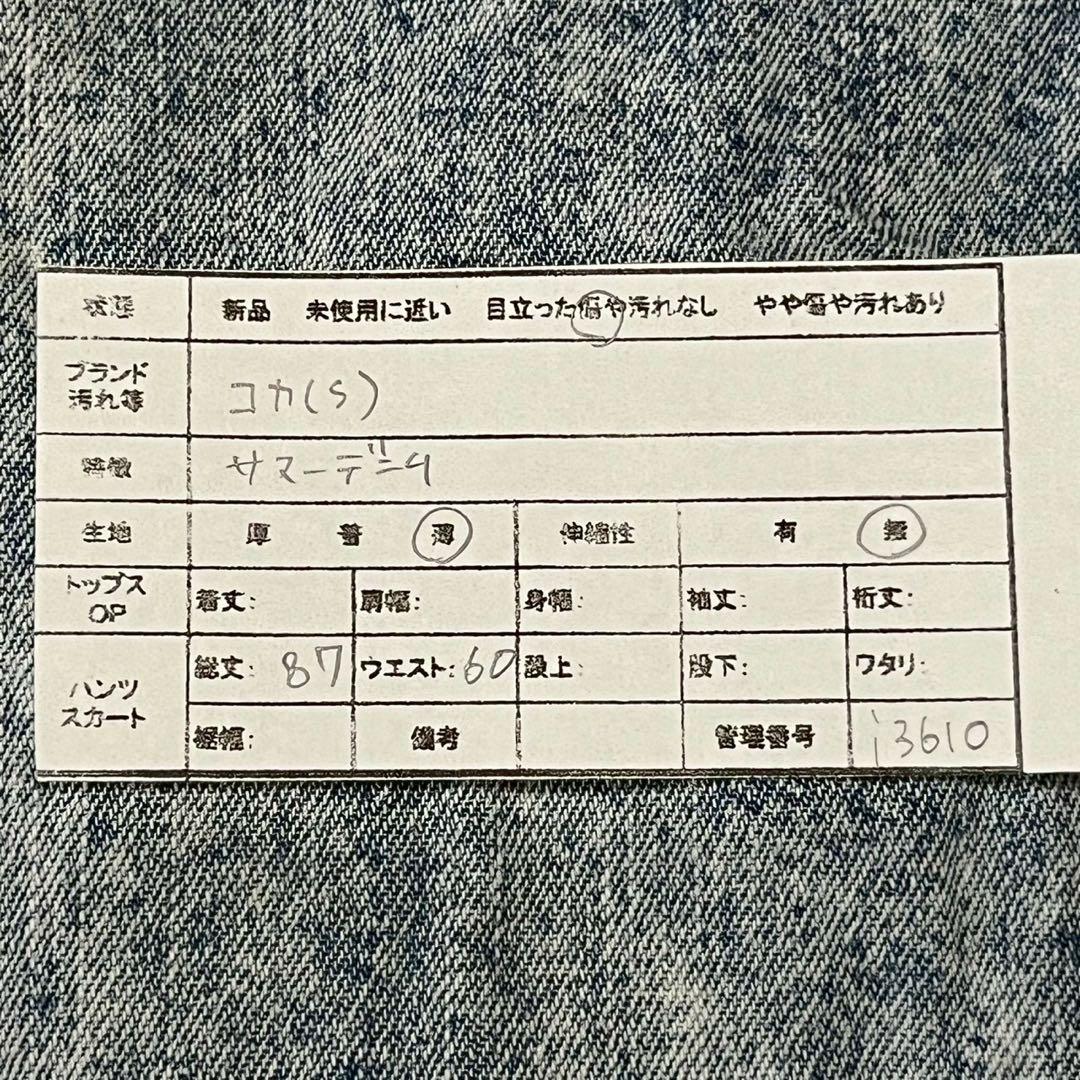 状態 新品 未使用に近い 目立った傷や汚れなし やや傷や汚れあり
ブランド
汚れ等
コカ(S)
特徴 サマーデニム
生地 厚 普 薄 伸縮性 有 無
トップス
OP
着丈: 肩幅: 身幅: 袖丈: 裄丈:
パンツ
スカート
総丈: 87 ウエスト: 60 股上: 股下: ワタリ:
裾幅: 備考 管理番号 i3610